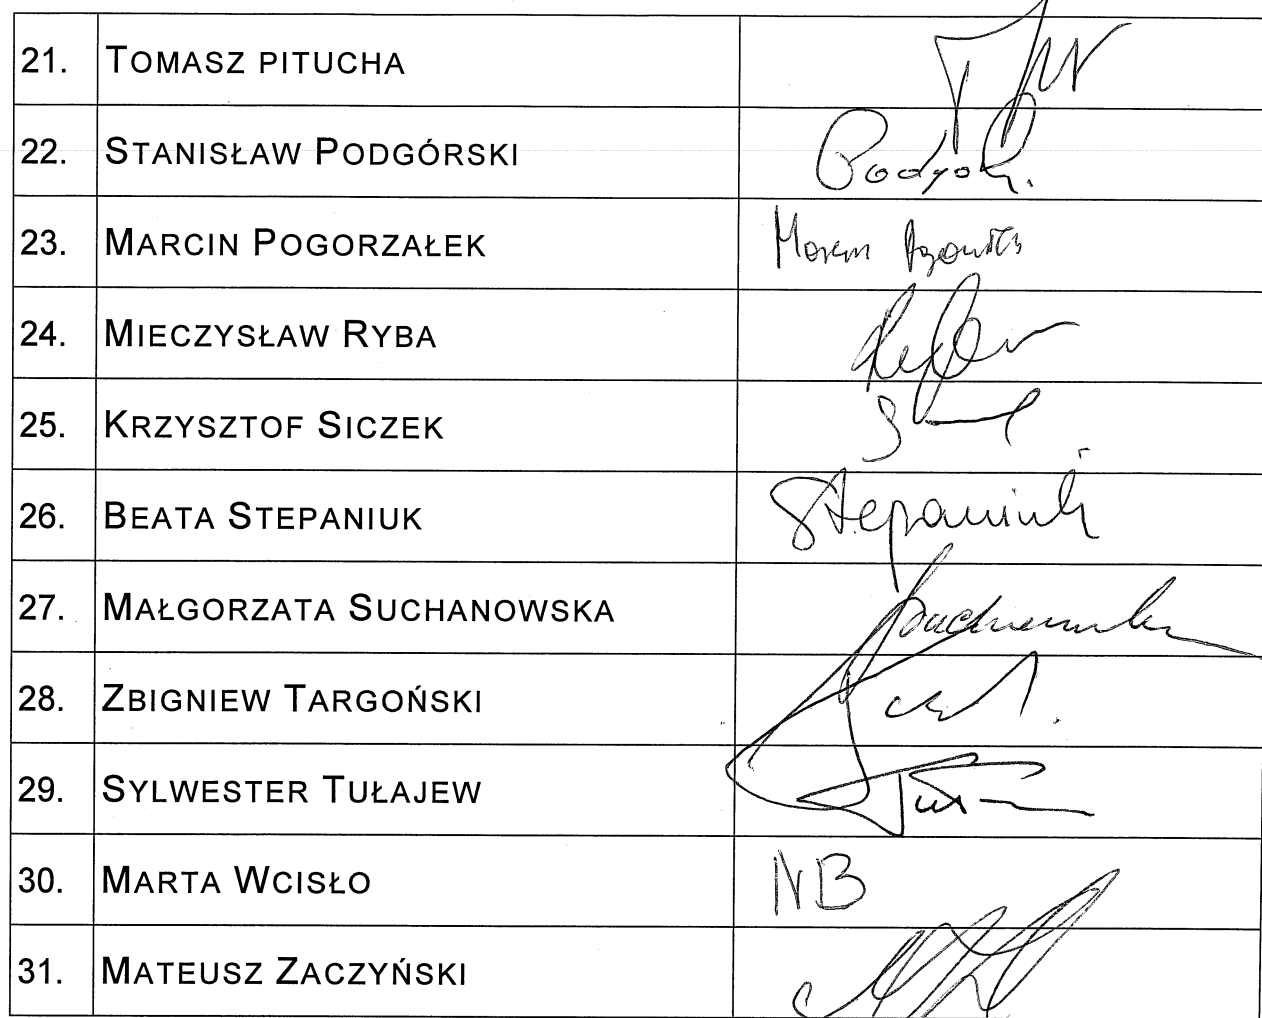 21. TOMASZ PITUCHA
22. STANISŁAW PODGÓRSKI
23. MARCIN POGORZAŁEK Marcin
24. MIECZYSŁAW RYBA
25. KRZYSZTOF SICZEK
26. BEATA STEPANIUK Stepaniuk
27. MAŁGORZATA SUCHANOWSKA
28. ZBIGNIEW TARGOŃSKI
29. SYLWESTER TUŁAJEW
30. MARTA WCISŁO NB
31. MATEUSZ ZACZYŃSKI